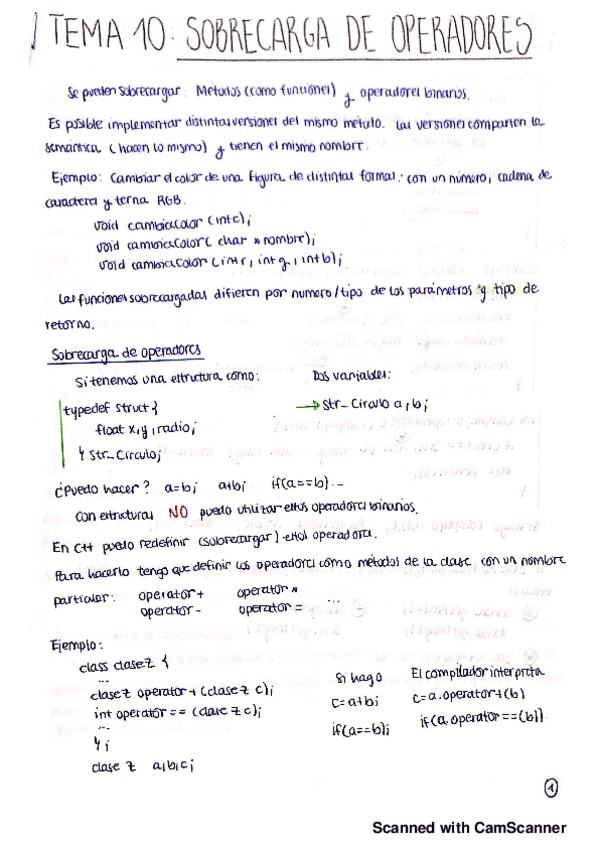 TEMA 10: SOBRECARGA DE OPERADORES
Se pueden sobrecargar: Métodos (como funciones) y operadores binarios.
Es posible implementar distintas versiones del mismo método. Las versiones comparten la
semántica (hacen lo mismo) y tienen el mismo nombre.
Ejemplo: Cambiar el color de una figura de distintas formas: con un número, cadena de
caracteres y terna RGB.
void cambiaColor (int c);
void cambiaColor ( char * nombre);
void cambiaColor (int r, int g, int b);
Las funciones sobrecargadas difieren por numero/tipo de los parámetros y tipo de
retorno.
Sobrecarga de operadores
Si tenemos una estructura como: Dos variables:
typedef struct { → Str_Circulo a, b;
float x, y, radio;
} Str_Circulo;
¿Puedo hacer? a=b; a+b; if(a==b)...
Con estructuras NO puedo utilizar estos operadores binarios.
En C++ puedo redefinir (sobrecargar) estos operadores.
Para hacerlo tengo que definir los operadores como métodos de la clase con un nombre
particular: operator + operator *
operator - operator = ...
Ejemplo:
class claseZ { Si hago El compilador interpreta
...
claseZ operator + (claseZ c); c=a+b; c=a.operator+(b)
int operator == (claseZ c); if(a==b); if(a.operator==(b))
...
};
clase Z a,b,c;
1
Scanned with CamScanner